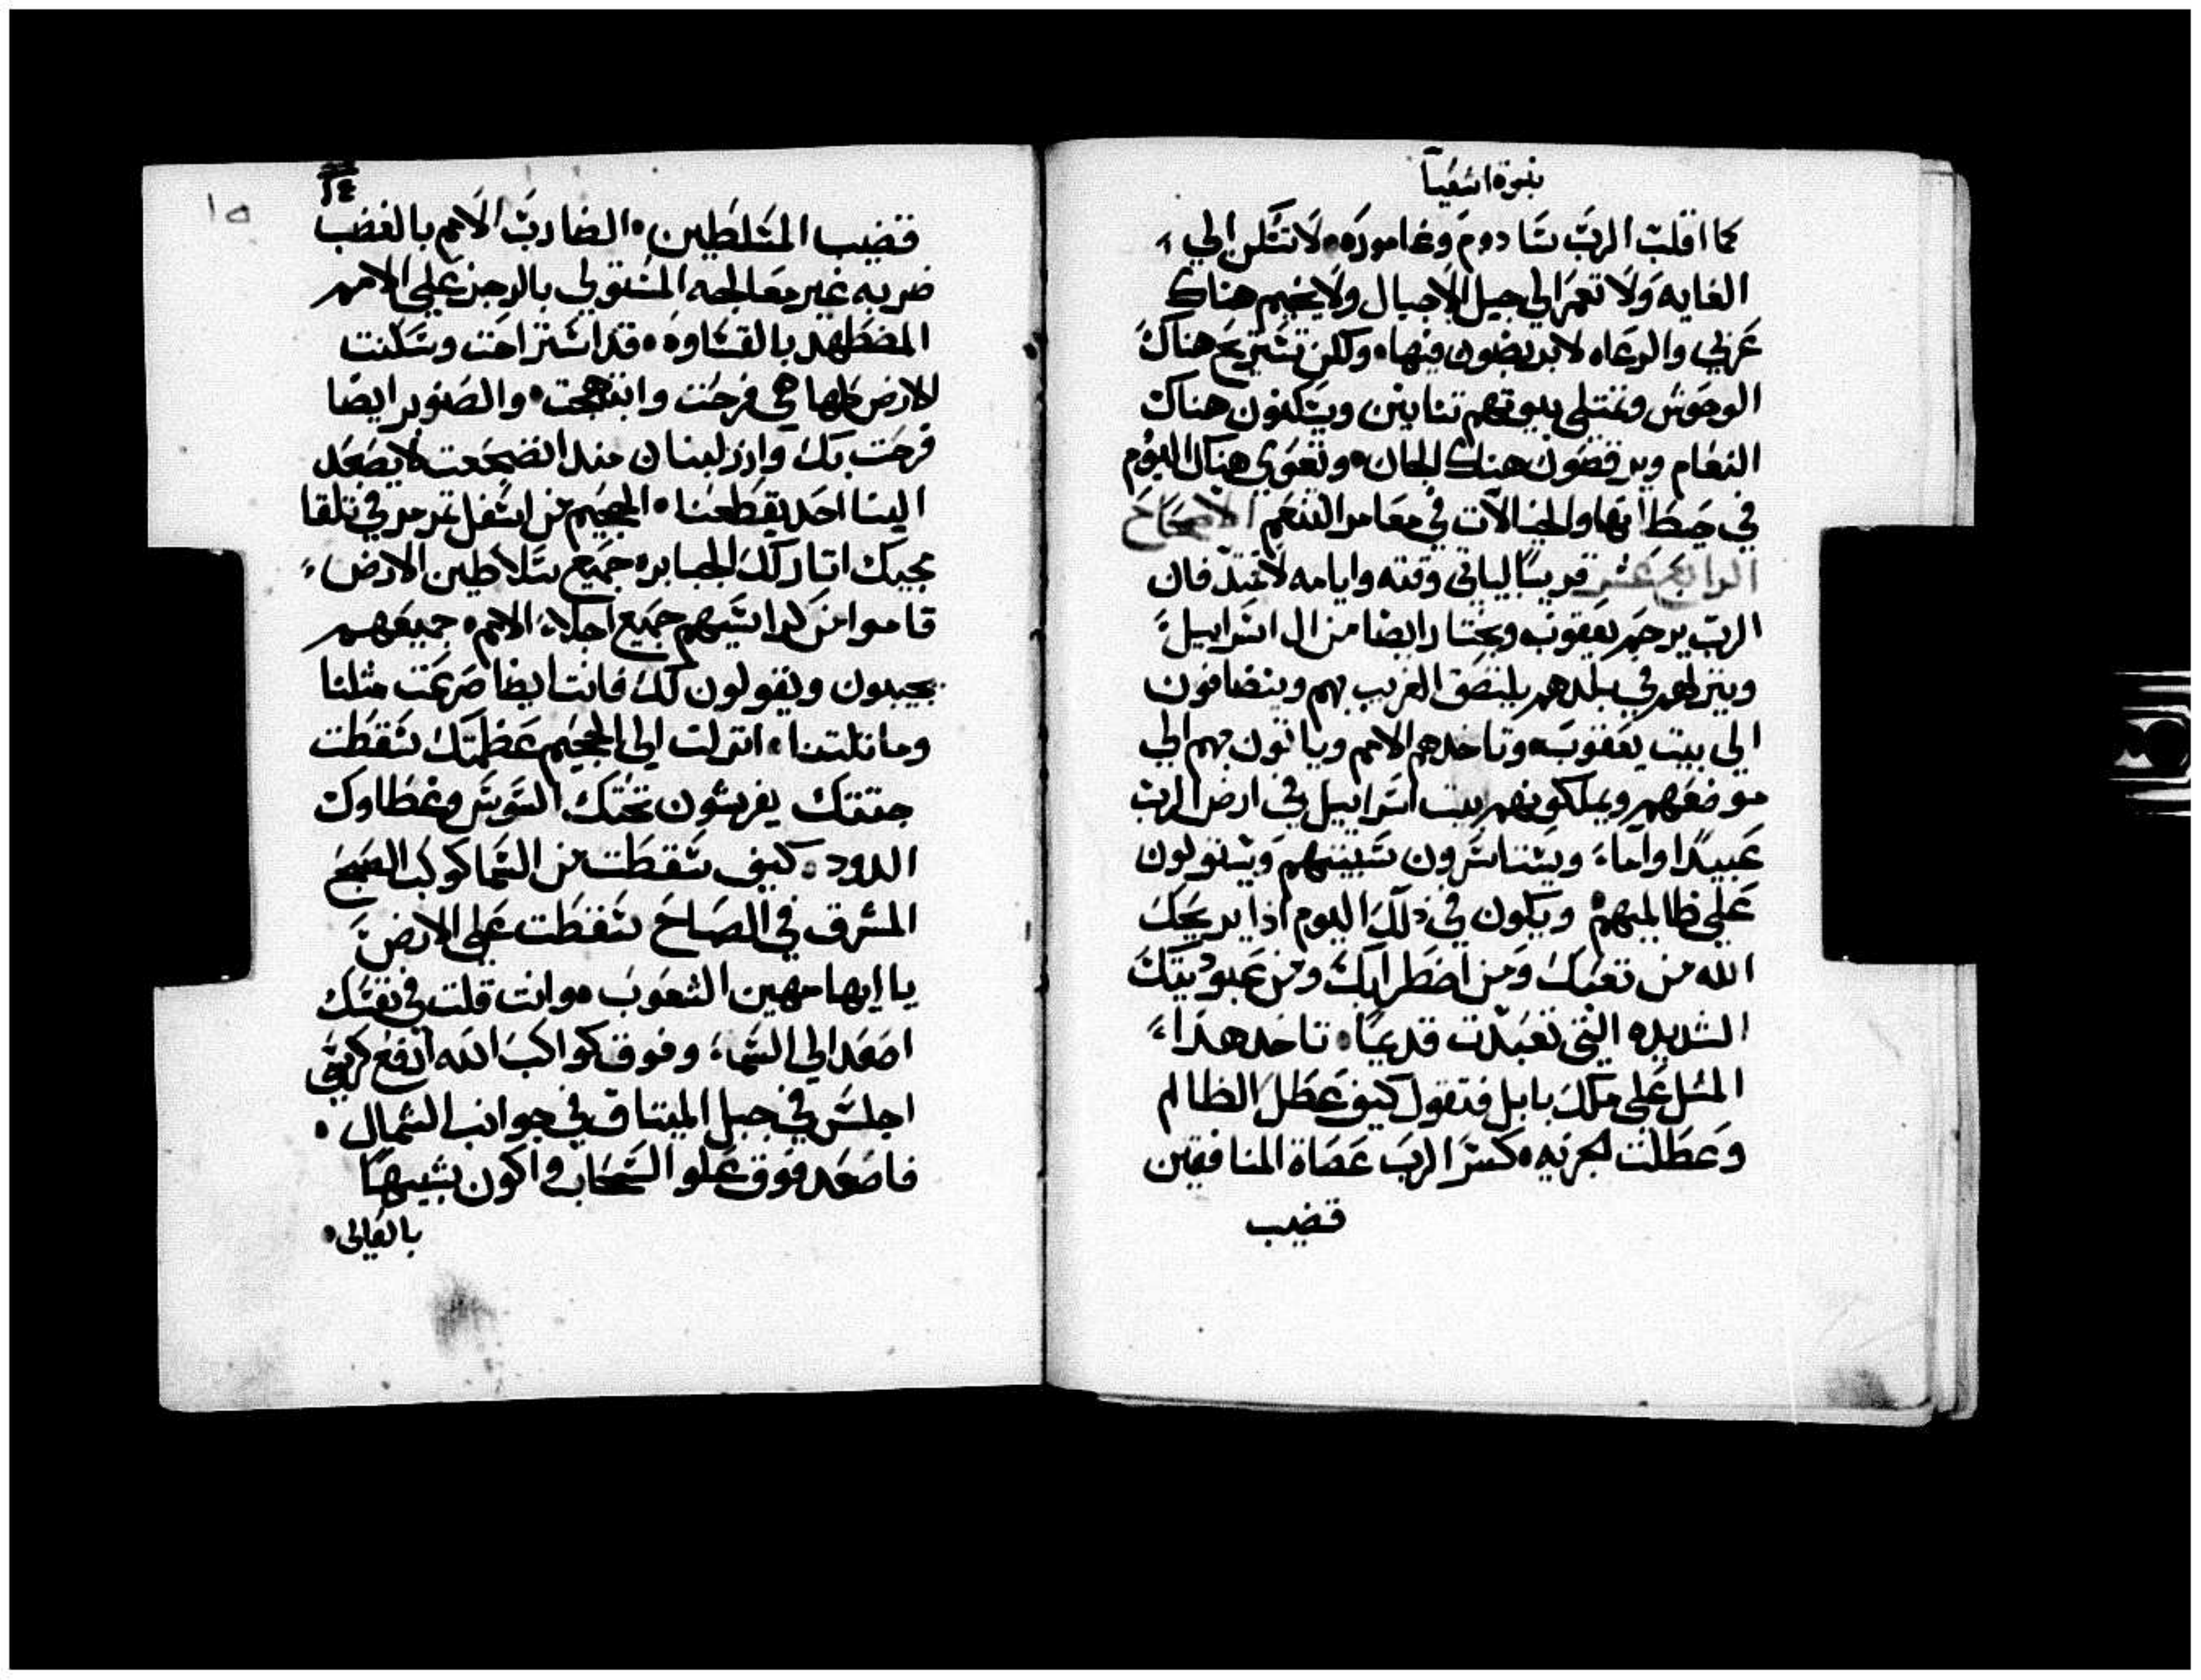 نبوة اشعيا
كما اقلب الرب سادوم وغاموره٠ لا تسكن الي
الغايه ولا تعمر الي جيل الاجيال ولا يخيم هناك
عربي والرعاه لا يربضون فيها٠ ولكن تستريح هناك
الوحوش وتمتلي بيوتهم تنانين ويسكنون هناك
النعام ويرقصون هناك الجان٠ وتعوي هناك البوم
في حيطانها والخيالات في معامر التنعم الاصحاح
الرابع عشر قريبا لياتي وقته وايامه لا تمتد فان
الرب يرحم يعقوب ويختار ايضا من ال اسراييل
وينزلهم في بلدهم يلتصق الغريب بهم وينضافون
الي بيت يعقوب٠ وتاخدهم الامم وياتون بهم الي
موضعهم ويملكونهم بيت اسراييل في ارض الرب
عبيدا واماء ويستاسرون سبيتهم ويستولون
علي ظالميهم ويكون في ذلك اليوم اذا يريحك
الله من تعبك ومن اضطرابك ومن عبوديتك
الشديده التي تعبدت قديما٠ تاخد هدا
المثل علي ملك بابل فتقول كيف عطل الظالم
وعطلت الجزيه٠ كسر الرب عصاة المنافقين
قضيب
١٤
١٥
قضيب المتسلطين٠ الضارب الامم بالغضب
ضربه غير معالجه المستولي بالرجز علي الامم
المضطهد بالقساوه٠ قد استراحت وسكنت
الارض كلها هي فرحت وابتهجت٠ والصنوبر ايضا
فرحت بك وارز لبنان مند انضجعت لا يصعد
الينا احد يقطعنا٠ الجحيم من اسفل تمرمر في تلقا
مجيك اثار لك الجبابره جميع سلاطين الارض
قاموا من كراسيهم جميع اجلاء الامم٠ جميعهم
يجيبون ويقولون لك فانت ايظا صرعت مثلنا
وماثلتنا٠ انزلت الي الجحيم عظمتك سقطت
جثتك يفرشون تحتك السوس وغطاوك
الدود٠ كيف سقطت من السما كوكب الصبح
المشرق في الصباح سقطت علي الارض
يا ايها مهين الشعوب ٠ وانت قلت في نفسك
اصعد الي السماء وفوق كواكب الله ارفع كرسي
اجلس في جبل الميتاق في جوانب الشمال٠
فاصعد فوق علو السحاب واكون شبيها
بالعالي٠